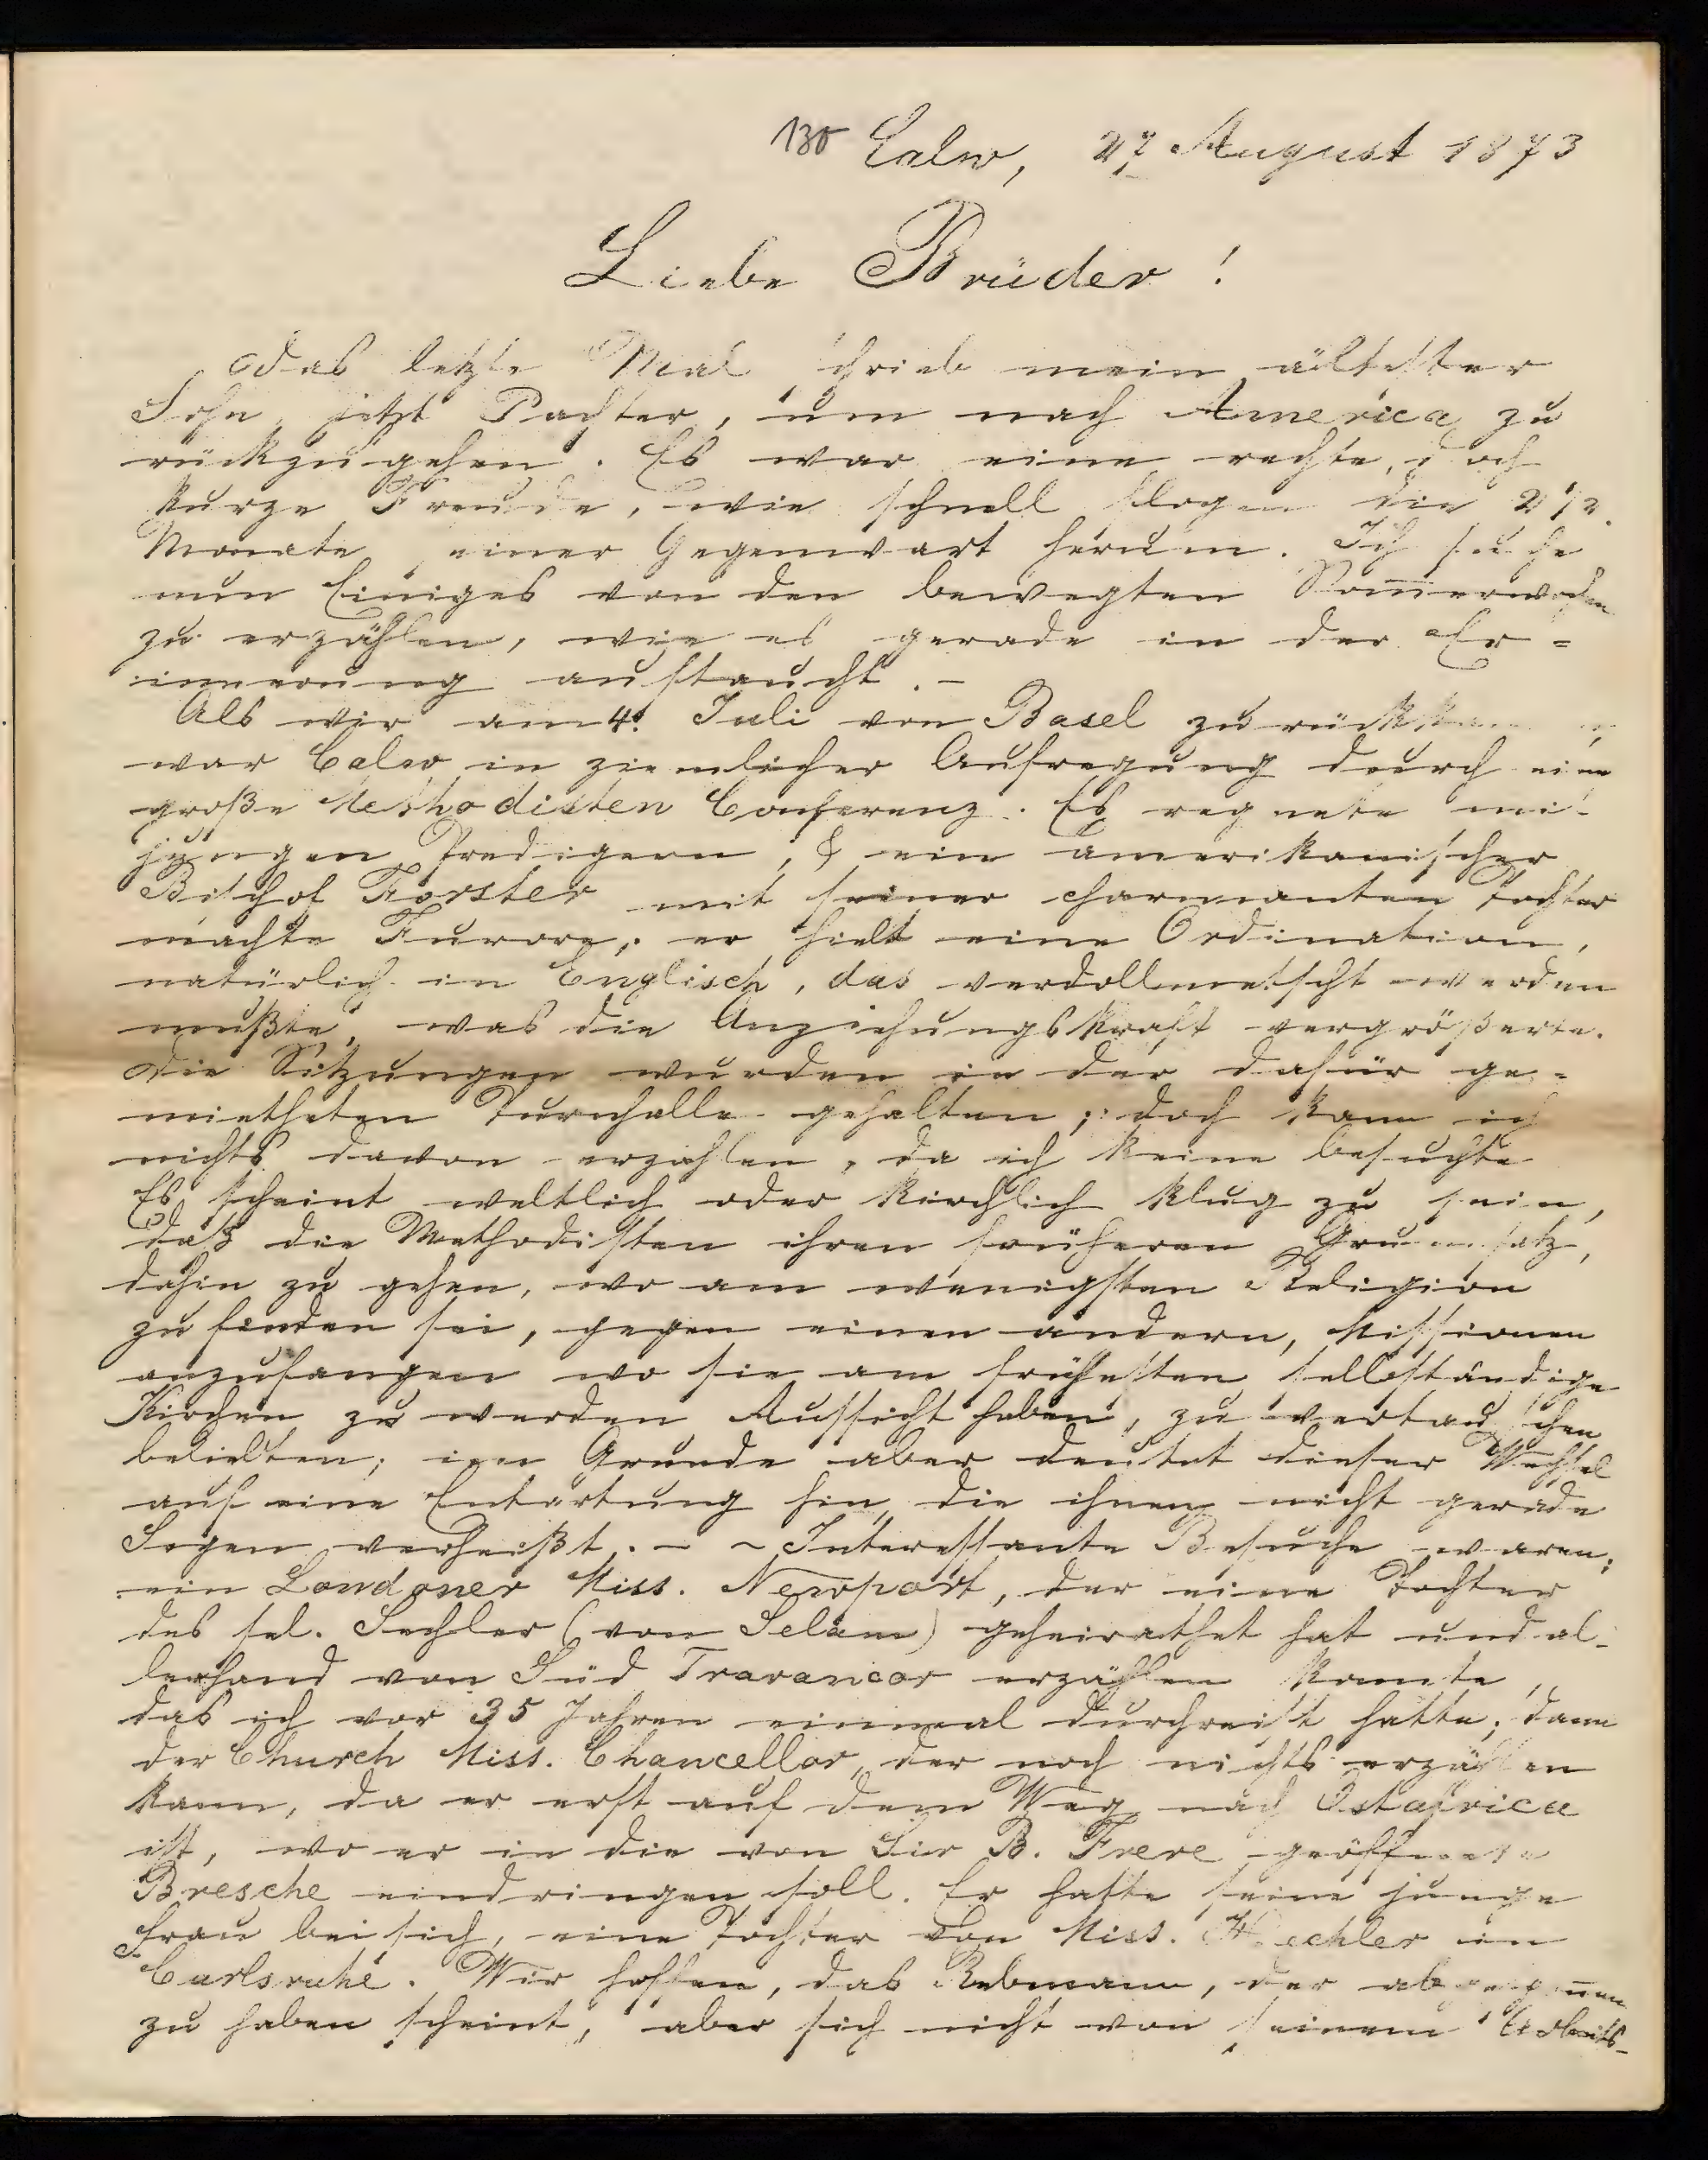 130 Calw, 27 August 1873
Liebe Brüder!
Das letzte Mal schrieb mein ältester
Sohn, jetzt Pachter, um nach America zu
rückzugehen. Es war eine rechte, doch
kurze Freude, wie schnell flogen die 2 1/2
Monate seiner Gegenwart herum. Ich suche
nun Einiges von den bewegten Som̄erwochen
zu erzählen, wie es gerade in der Er=
innerung auftaucht. –
Als wir am 4. Juli von Basel zurückkamen
war Calw in ziemlicher Aufregung durch eine
große Methodisten Conferenz. Es regnete mit
jungen Predigern, & ein amerikanischer
Bischof Forster mit seiner charmanten Tochter
machte Furore; er hielt eine Ordination,
natürlich in Englisch, das verdollmetscht werden
mußte, was die Anziehungskraft vergrößerte.
Die Sitzungen wurden in der dafür ge=
mietheten Turnhalle gehalten; doch kann ich
nichts davon erzählen, da ich keine besuchte
Es scheint weltlich oder kirchlich klug zu sein,
daß die Methodisten ihren früheren Grundsatz,
dahin zu gehen, wo am wenigsten Religion
zu finden sei, gegen einen andern, Missionen
anzufangen wo sie am frühesten selbständige
Kirchen zu werden Aussicht haben, zu vertauschen
beliebten; im Grunde aber deutet dieser Wechsel
auf eine Entartung hin, die ihnen nicht gerade
Segen verheißt. – ~ Interessante Besuche waren:
ein Londoner Miss. Newport, der eine Tochter
des sel. Lechler (von Selam) geheirathet hat und al-
lerhand von Süd Travancor erzählen konnte,
das ich vor 35 Jahren einmal durchreist hatte; dann
der Church Miss. Chancellor, der noch nichts erzählen
kann, da er erst auf dem Weg nach Ostafrica
ist, wo er in die von Sir B. Frere geöffnete
Bresche eindringen soll. Er hatte seine junge
Frau bei sich, eine Tochter von Miss. Hechler in
Carlsruhe. Wir hoffen, das Rebmann, der abgenom̄en
zu haben scheint, aber sich nicht von seinem Arbeits-